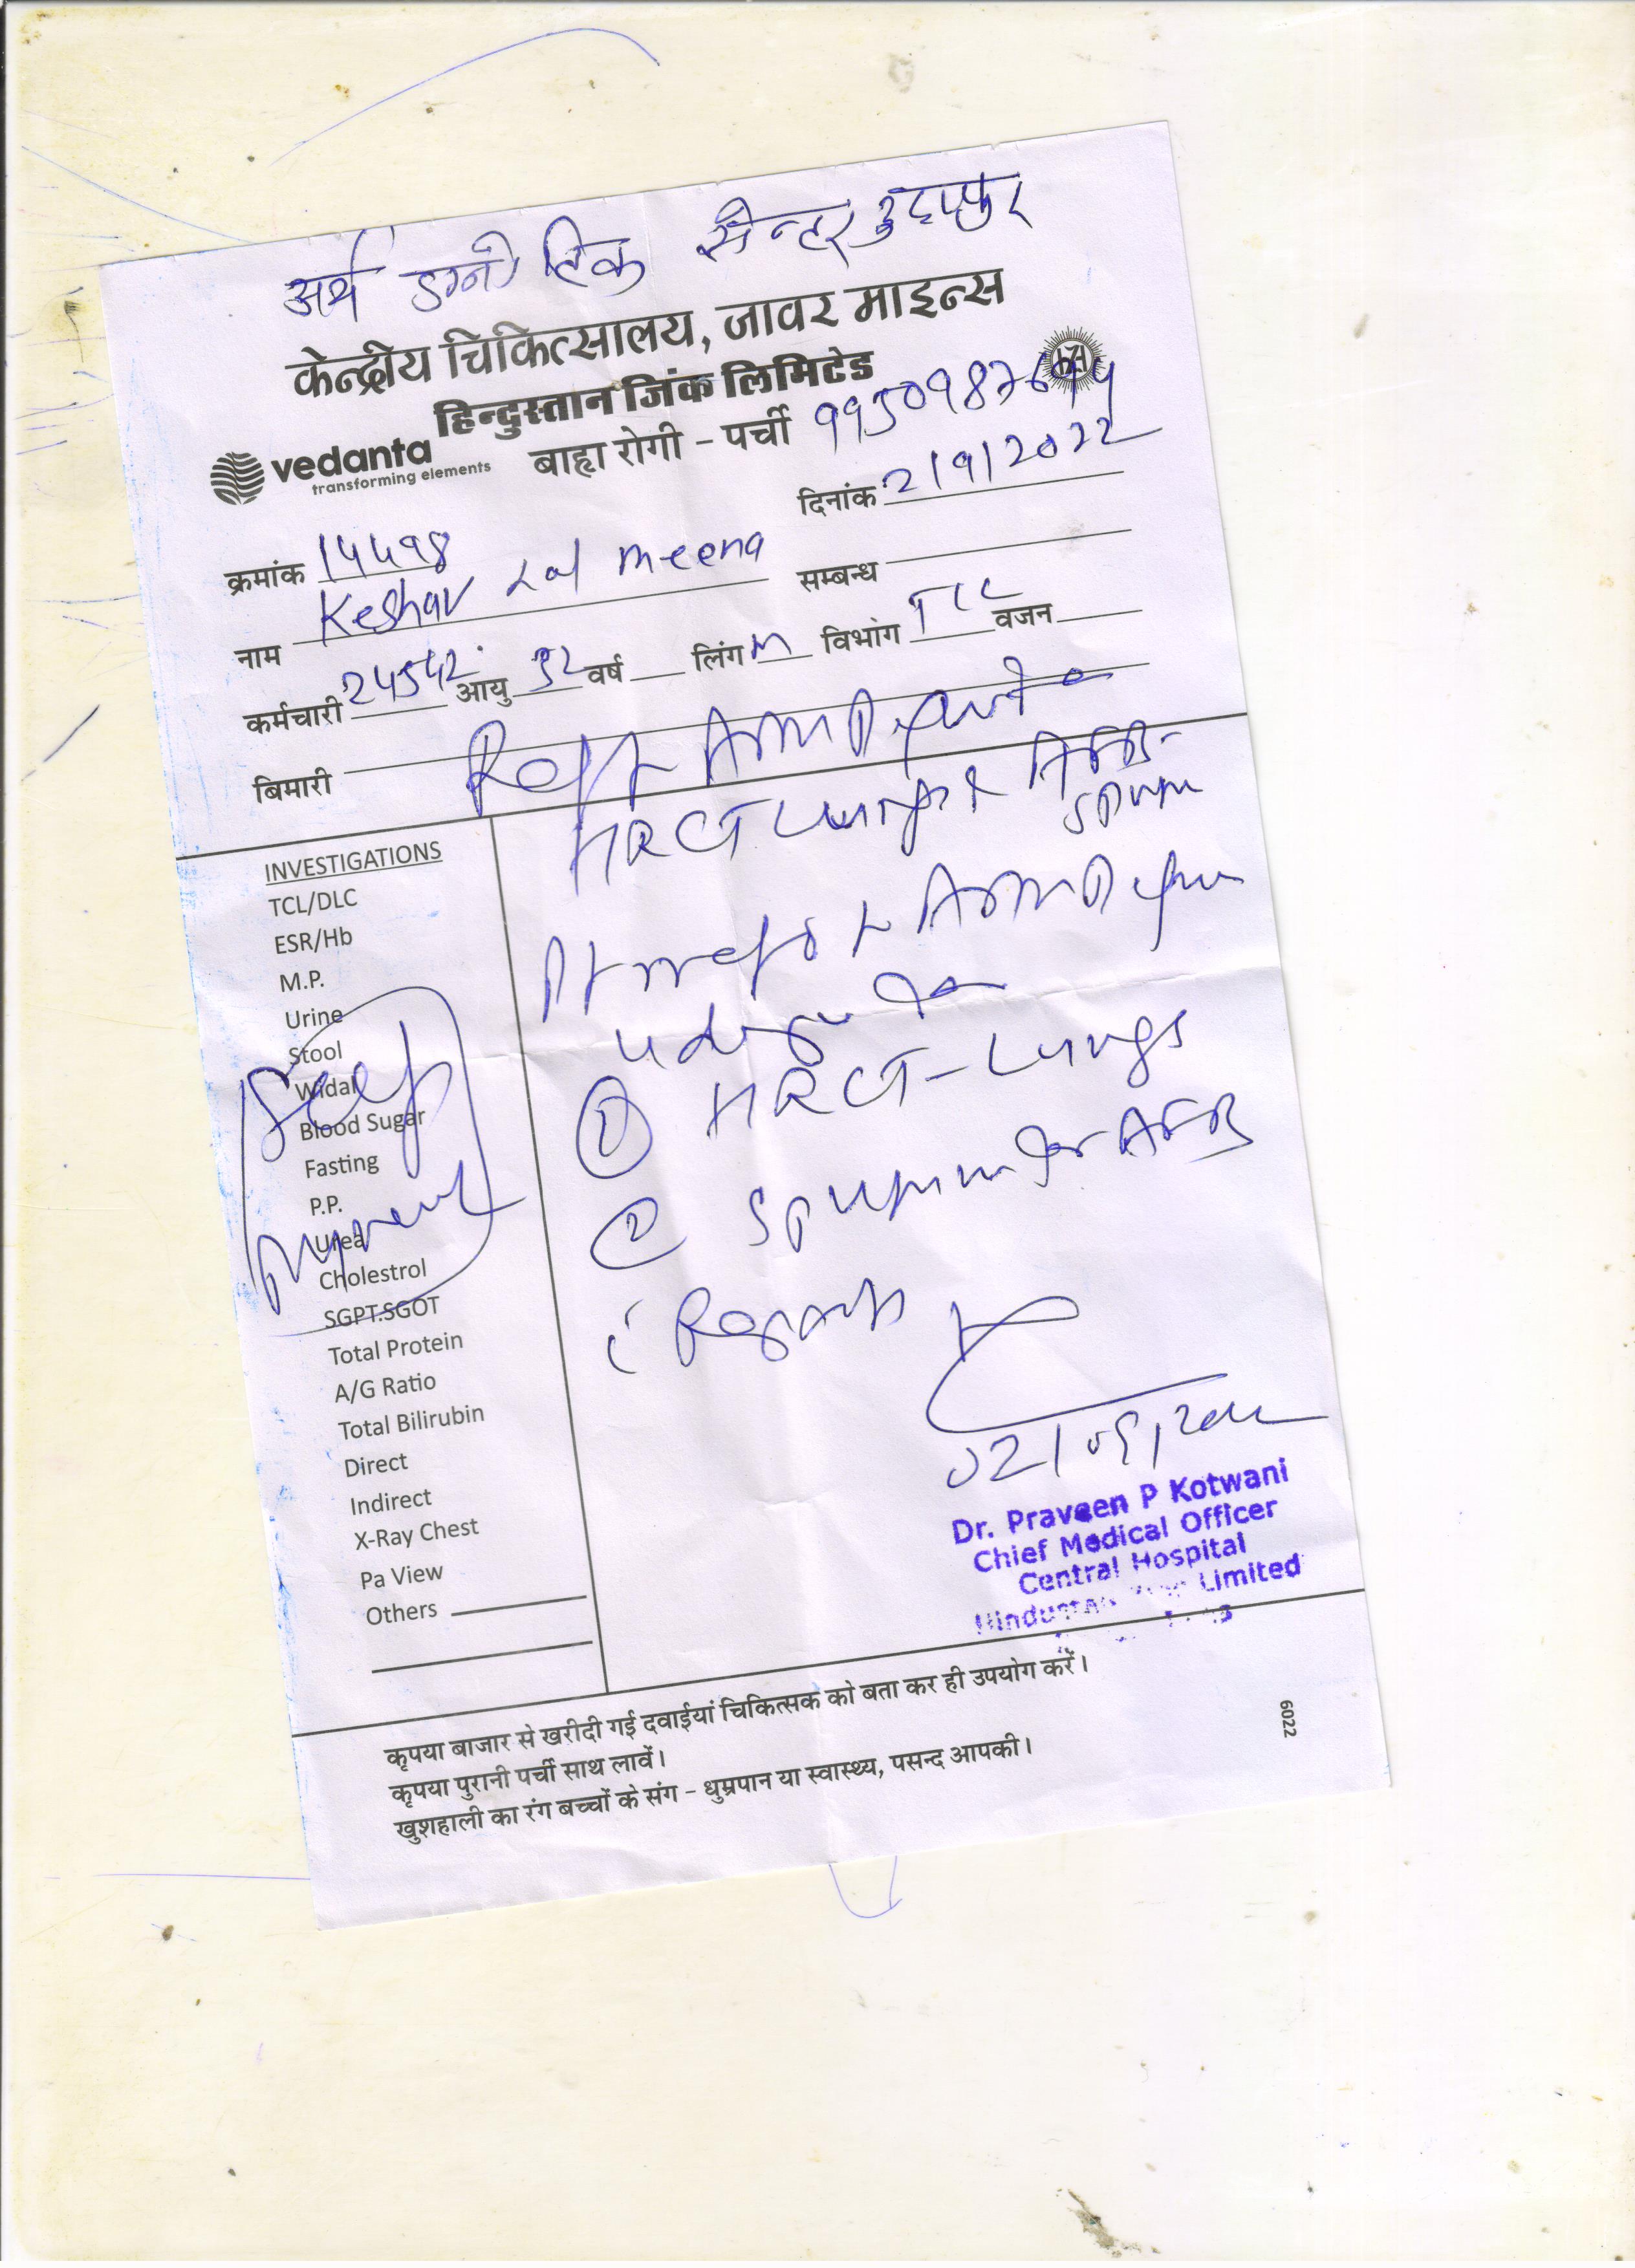 अर्थ डग्नोटिक सेन्टर उदयपुर
केन्द्रीय चिकित्सालय, जावर माइन्स
हिन्दुस्तान जिंक लिमिटेड
vedanta
transforming elements
बाह्य रोगी - पर्ची
दिनांक 2/9/2022
क्रमांक
नाम Keshav Lal meena
सम्बन्ध
कर्मचारी 24542 आयु 52 वर्ष लिंग M विभांग वजन
बिमारी
HRCT Lungs & AFB-
Sputum
INVESTIGATIONS
TCL/DLC
ESR/Hb
M.P.
Urine
Stool
Widal
Blood Sugar
Fasting
P.P.
Urea
Cholestrol
SGPT.SGOT
Total Protein
A/G Ratio
Total Bilirubin
Direct
Indirect
X-Ray Chest
Pa View
Others
Self
payment
① HRCT-Lungs
② Sputum for AFB
02/09/2022
Dr. Praveen P Kotwani
Chief Medical Officer
Central Hospital
Hindustan Zinc Limited
कृपया बाजार से खरीदी गई दवाईयां चिकित्सक को बता कर ही उपयोग करें।
कृपया पुरानी पर्ची साथ लावें।
खुशहाली का रंग बच्चों के संग - धुम्रपान या स्वास्थ्य, पसन्द आपकी।
6022